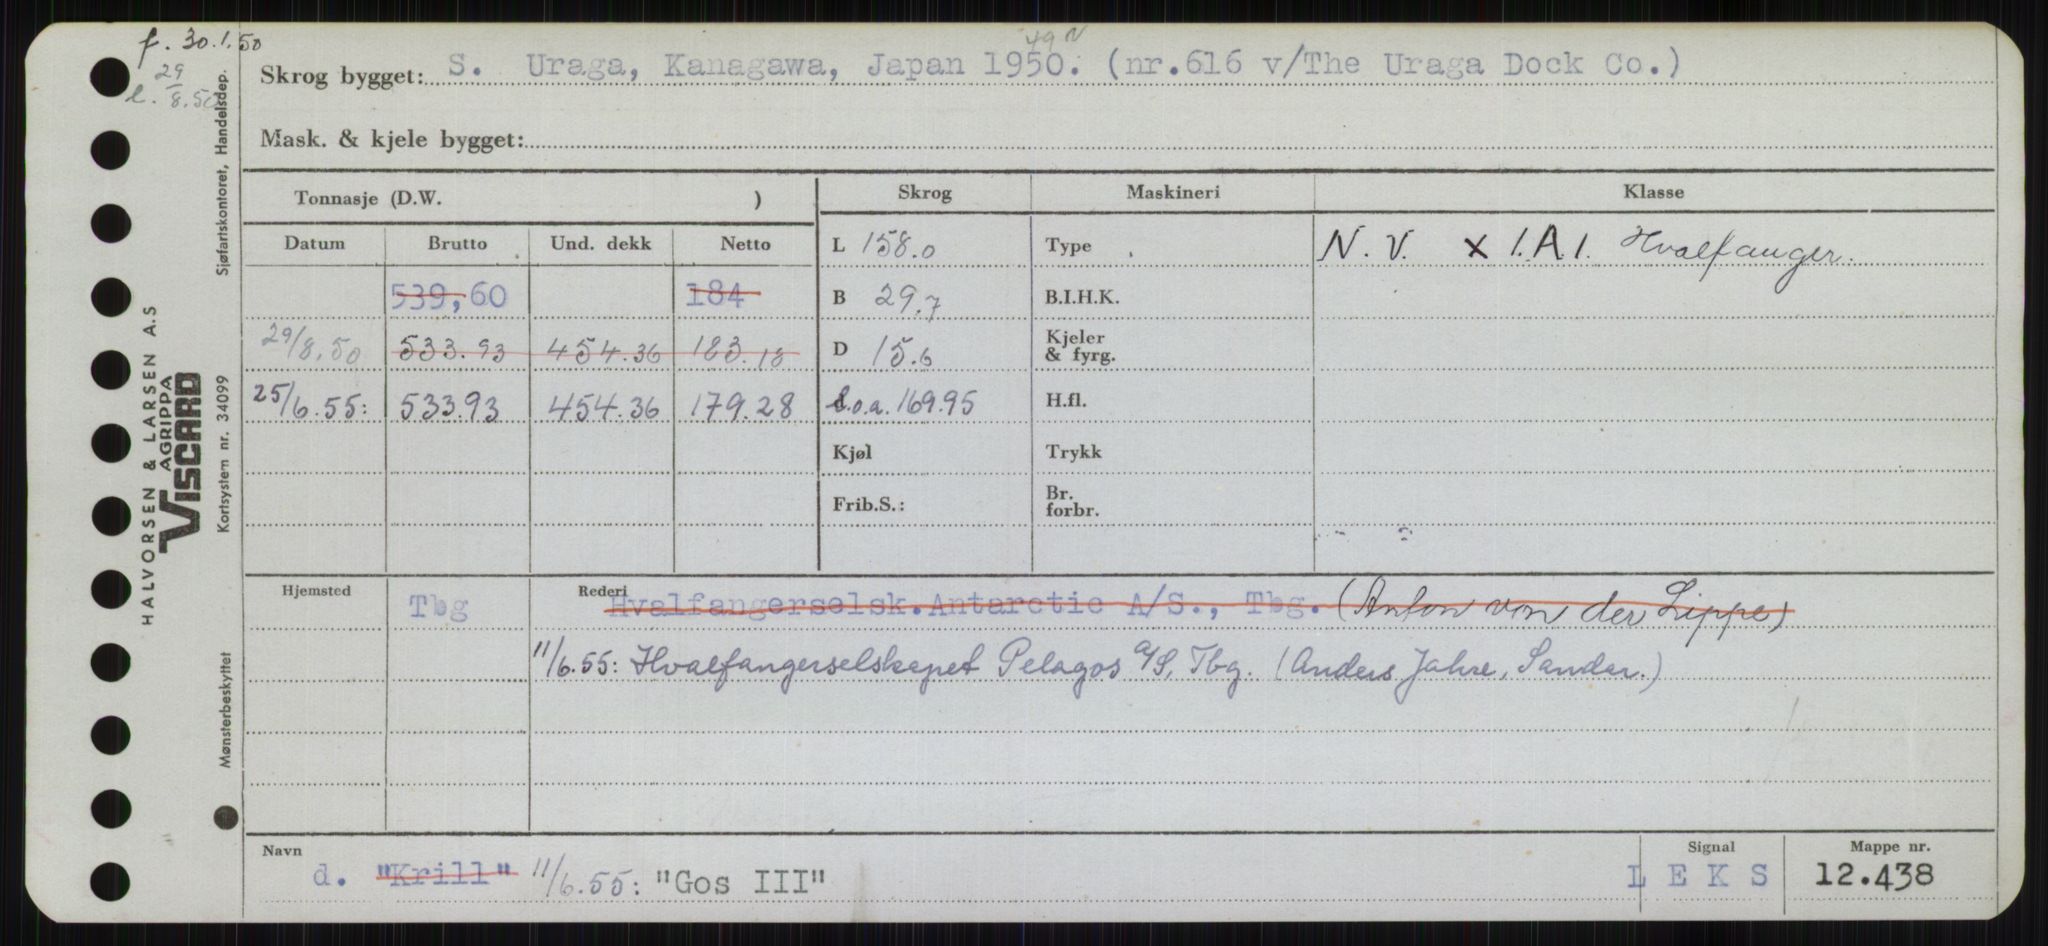 f. 30.1.50
29/8.50
49 N
Skrog bygget: S. Uraga, Kanagawa, Japan 1950. (nr.616 v/The Uraga Dock Co.)
Mask. & kjele bygget:
Tonnasje (D.W. )
Skrog Maskineri Klasse
Datum Brutto Und. dekk Netto
L 158.0 Type N.V. x 1.A.1. Hvalfanger.
539,60 184 B 29.7 B.I.H.K.
29/8.50 533.93 454.36 183.18 D 15.6 Kjeler & fyrg.
25/6.55: 533.93 454.36 179.28 l.o.a. 169.95 H.fl.
Kjøl Trykk
Frib.S.: Br. forbr.
Hjemsted Tbg Rederi Hvalfangerselsk.Antarctic A/S., Tbg. (Anton von der Lippe)
11/6.55: Hvalfangerselskapet Pelagos A/S, Tbg. (Anders Jahre, Sandar.)
Navn Signal Mappe nr.
d. "Krill" 11/6.55: "Gos III" L E K S 12.438
HALVORSEN & LARSEN A.S
AGRIPPA
VISCARD
Mønsterbeskyttet Kortsystem nr. 34099 Sjøfartskontoret, Handelsdep.